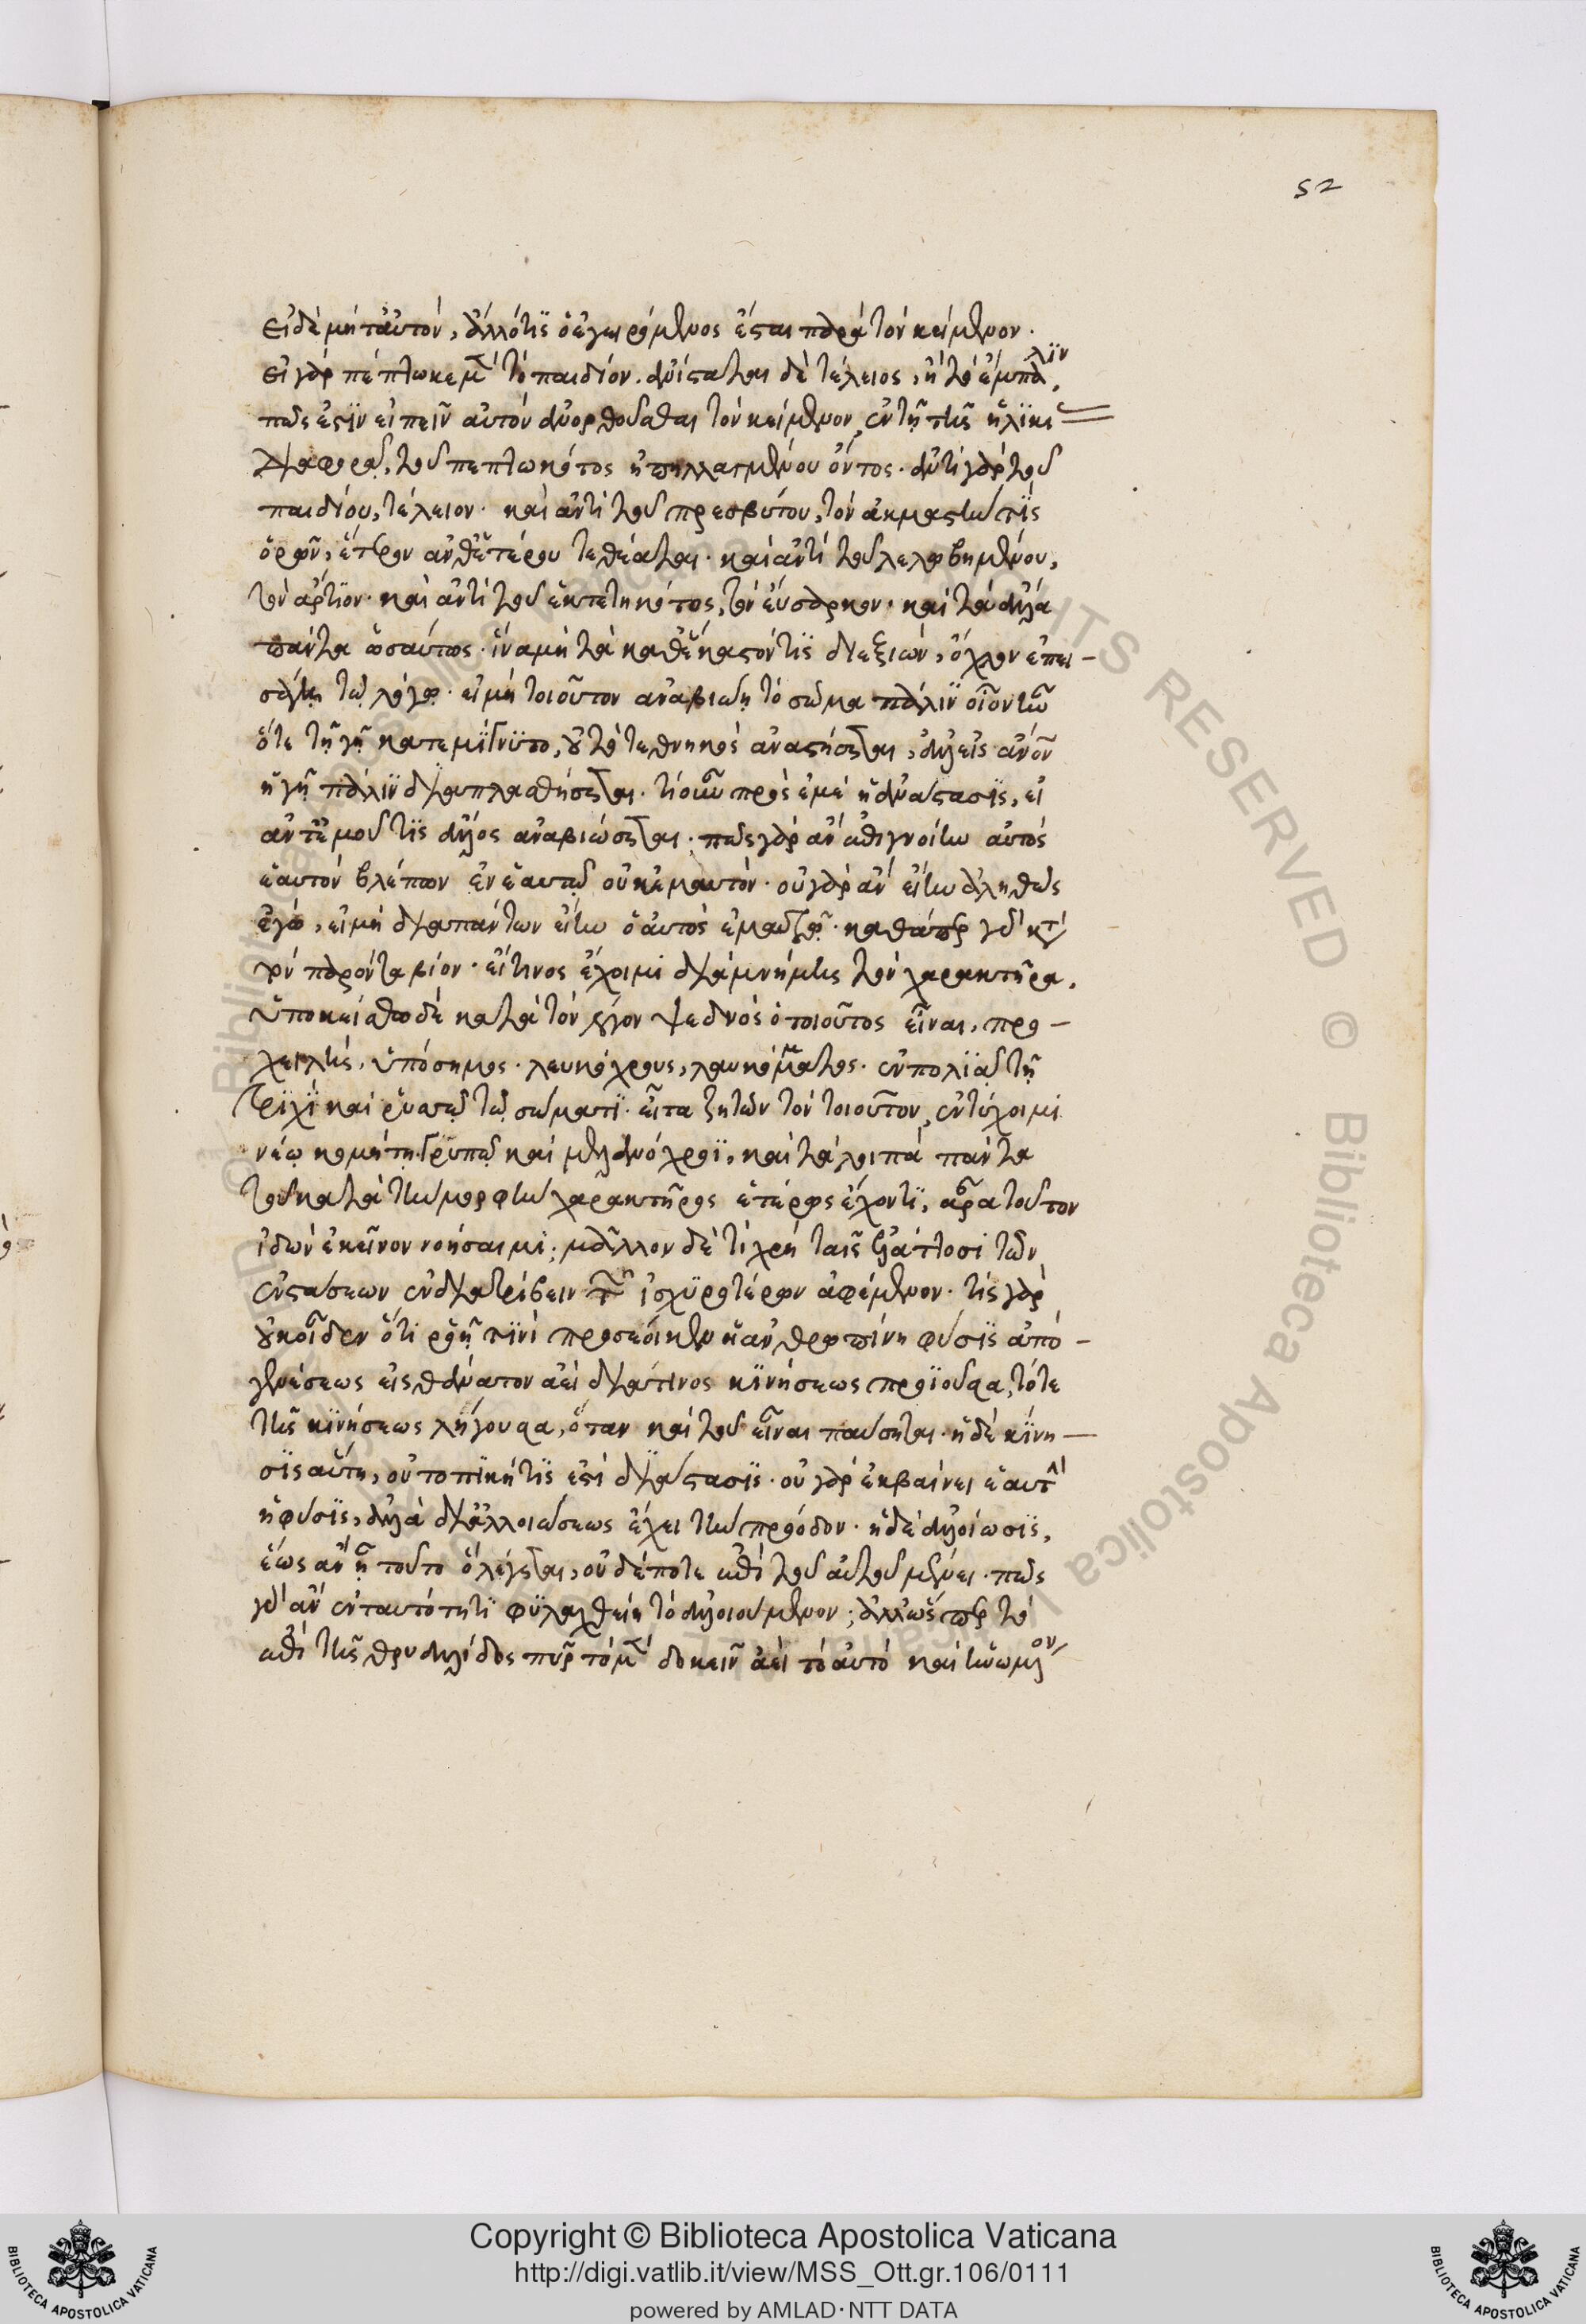 52
εἰ δὲ μὴ ταυτόν, ἀλλ' ὅτις ὁ ἐγειρόμενος ἔσται παρὰ τὸν κείμενον.
εἰ γὰρ πέπτωκε μὲν τὸ παιδίον. ἀνίσταται δὲ τέλειος, ἢ τὸ ἔμπαλιν,
πῶς ἐστὶν εἰπεῖν αὐτὸν ἀνορθοῦσθαι τὸν κείμενον, ἐν τῇ τῆς ἡλικι
διαφορᾷ, τοῦ πεπτωκότος ὑπηλλαγμένου ὄντος. ἀντὶ γὰρ τοῦ
παιδίου, τέλειον. καὶ ἀντὶ τοῦ πρεσβύτου, τὸν ἀκμαστὴν τὶς
ὁρῶν, ἕτερον ἀνθ' ἑτέρου τεθέαται. καὶ ἀντὶ τοῦ λελωβημένου,
τὸν ἄρτιον. καὶ ἀντὶ τοῦ ἐκτετηκότος, τὸν εὔσαρκον. καὶ τὰ ἀλλὰ
πάντα ὡσαύτως. ἵνα μὴ τὰ καθ' ἕκαστόν τις διεξιὼν, ὄχλον ἐπει-
σάγῃ τῷ λόγῳ. εἰ μὴ τοιοῦτον ἀναβιῴη τὸ σῶμα πάλιν οἷον ἦν
ὅτε τῇ γῇ κατεμίγνυτο, οὐ τὸ τεθνηκὸς ἀναστήσεται, ἀλλ' εἰς ἄνον
ἡ γῆ πάλιν διαπλασθήσεται. τί οὖν πρὸς ἐμὲ ἡ ἀνάστασις, εἰ
ἀντ' ἐμοῦ τὶς ἄλλος ἀναβιώσεται. πῶς γὰρ ἂν ἐπιγνοίην αὐτὸς
ἑαυτὸν βλέπων ἐν ἑαυτῷ οὐκ ἐμαυτόν. οὐ γὰρ ἂν εἴην ἀληθῶς
ἐγὼ, εἰ μὴ διαπάντων εἴην ὁ αὐτὸς ἐμαυτῷ. καθάπερ γὰρ κατὰ
τὸν παρόντα βίον. εἴ τινος ἔχοιμι διὰ μνήμης τὸν χαρακτῆρα,
ὑποκείσθω δὲ κατὰ τὸν λόγον ψεδνὸς ὁ τοιοῦτος εἶναι, προ-
χειλὴς, ὑπόσιμος. λευκόχρους, γλαυκόμματος. ἐν πολιᾷ τῇ
τριχὶ καὶ ῥυσσῷ τῷ σώματι. εἶτα ζητῶν τὸν τοιοῦτον, ἐντύχοιμι
νέῳ κομήτῃ. γρυπῷ καὶ μελανόχροϊ, καὶ τὰ λοιπὰ πάντα
τοῦ κατὰ τὴν μορφὴν χαρακτῆρος ἑτέρως ἔχοντι, ἆρα τοῦτον
ἰδὼν ἐκεῖνον νοήσαιμι; μᾶλλον δὲ τί χρὴ ταῖς ἐλάττοσι τῶν
ἐνστάσεων ἐνδιατρίβειν τῶν ἰσχυροτέρων ἀφέμενον. τίς γὰρ
οὐκ οἶδεν ὅτι ῥοῇ τινὶ προσέοικεν ἡ ἀνθρωπίνη φύσις ἀπὸ-
γενέσεως εἰς θάνατον ἀεὶ διά τινος κινήσεως προϊοῦσα, τότε
τῆς κινήσεως λήγουσα, ὅταν καὶ τοῦ εἶναι παύσηται. ἡ δὲ κίνη-
σις αὕτη, οὐ τοπική τίς ἐστι διάστασις. οὐ γὰρ ἐκβαίνει ἑαυτὴν
ἡ φύσις, ἀλλὰ δι' ἀλλοιώσεως ἔχει τὴν πρόοδον. ἡ δὲ ἀλλοίωσις,
ἕως ἂν ᾖ τοῦτο ὃ λέγεται, οὐδέποτε ἐπὶ τοῦ αὐτοῦ μένει. πῶς
γὰρ ἂν ἐν ταυτότητι φυλαχθείη τὸ ἀλλοιούμενον; ἀλλ' ὥσπερ τὸ
ἐπὶ τῆς θρυαλλίδος πῦρ τὸ μὲν δοκεῖν ἀεὶ τὸ αὐτὸ καὶ
Copyright © Biblioteca Apostolica Vaticana
http://digi.vatlib.it/view/MSS_Ott.gr.106/0111
powered by AMLAD·NTT DATA
BIBLIOTECA APOSTOLICA VATICANA
BIBLIOTECA APOSTOLICA VATICANA